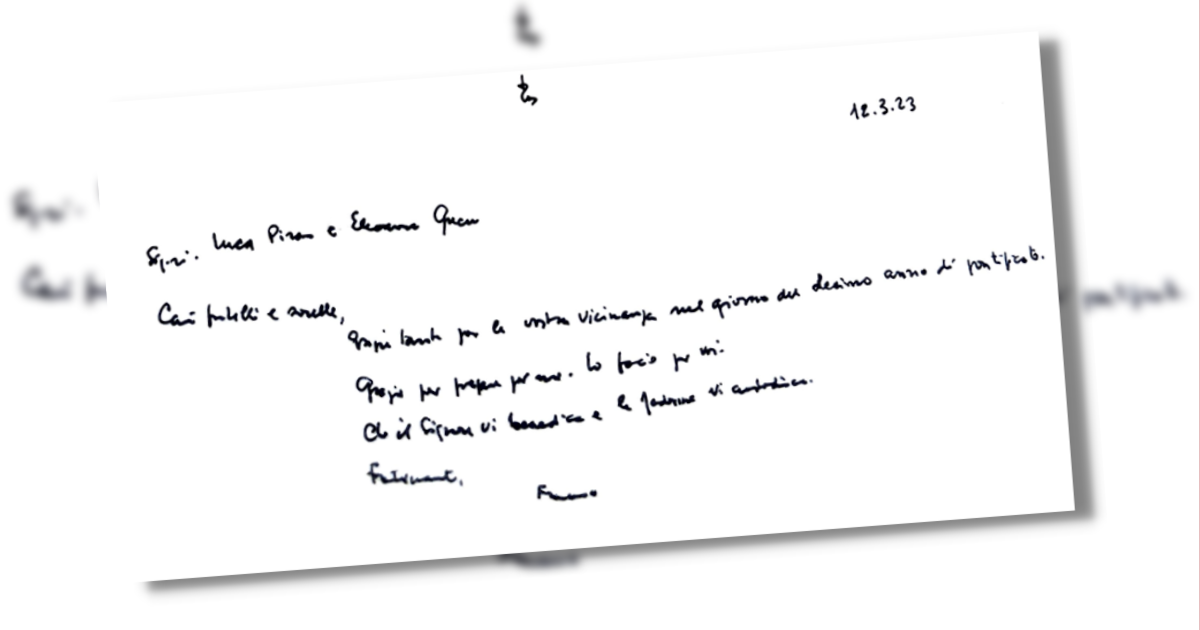 12.3.23
Sigri. Luca Piran e Eleonora
Cari fratelli e sorelle,
grazie tante per la vostra vicinanza nel giorno del decimo anno di pontificato.
Grazie per pregare per me. Lo faccio per voi.
Che il Signore vi benedica e la Madonna vi custodisca.
Fraternamente,
Francesco